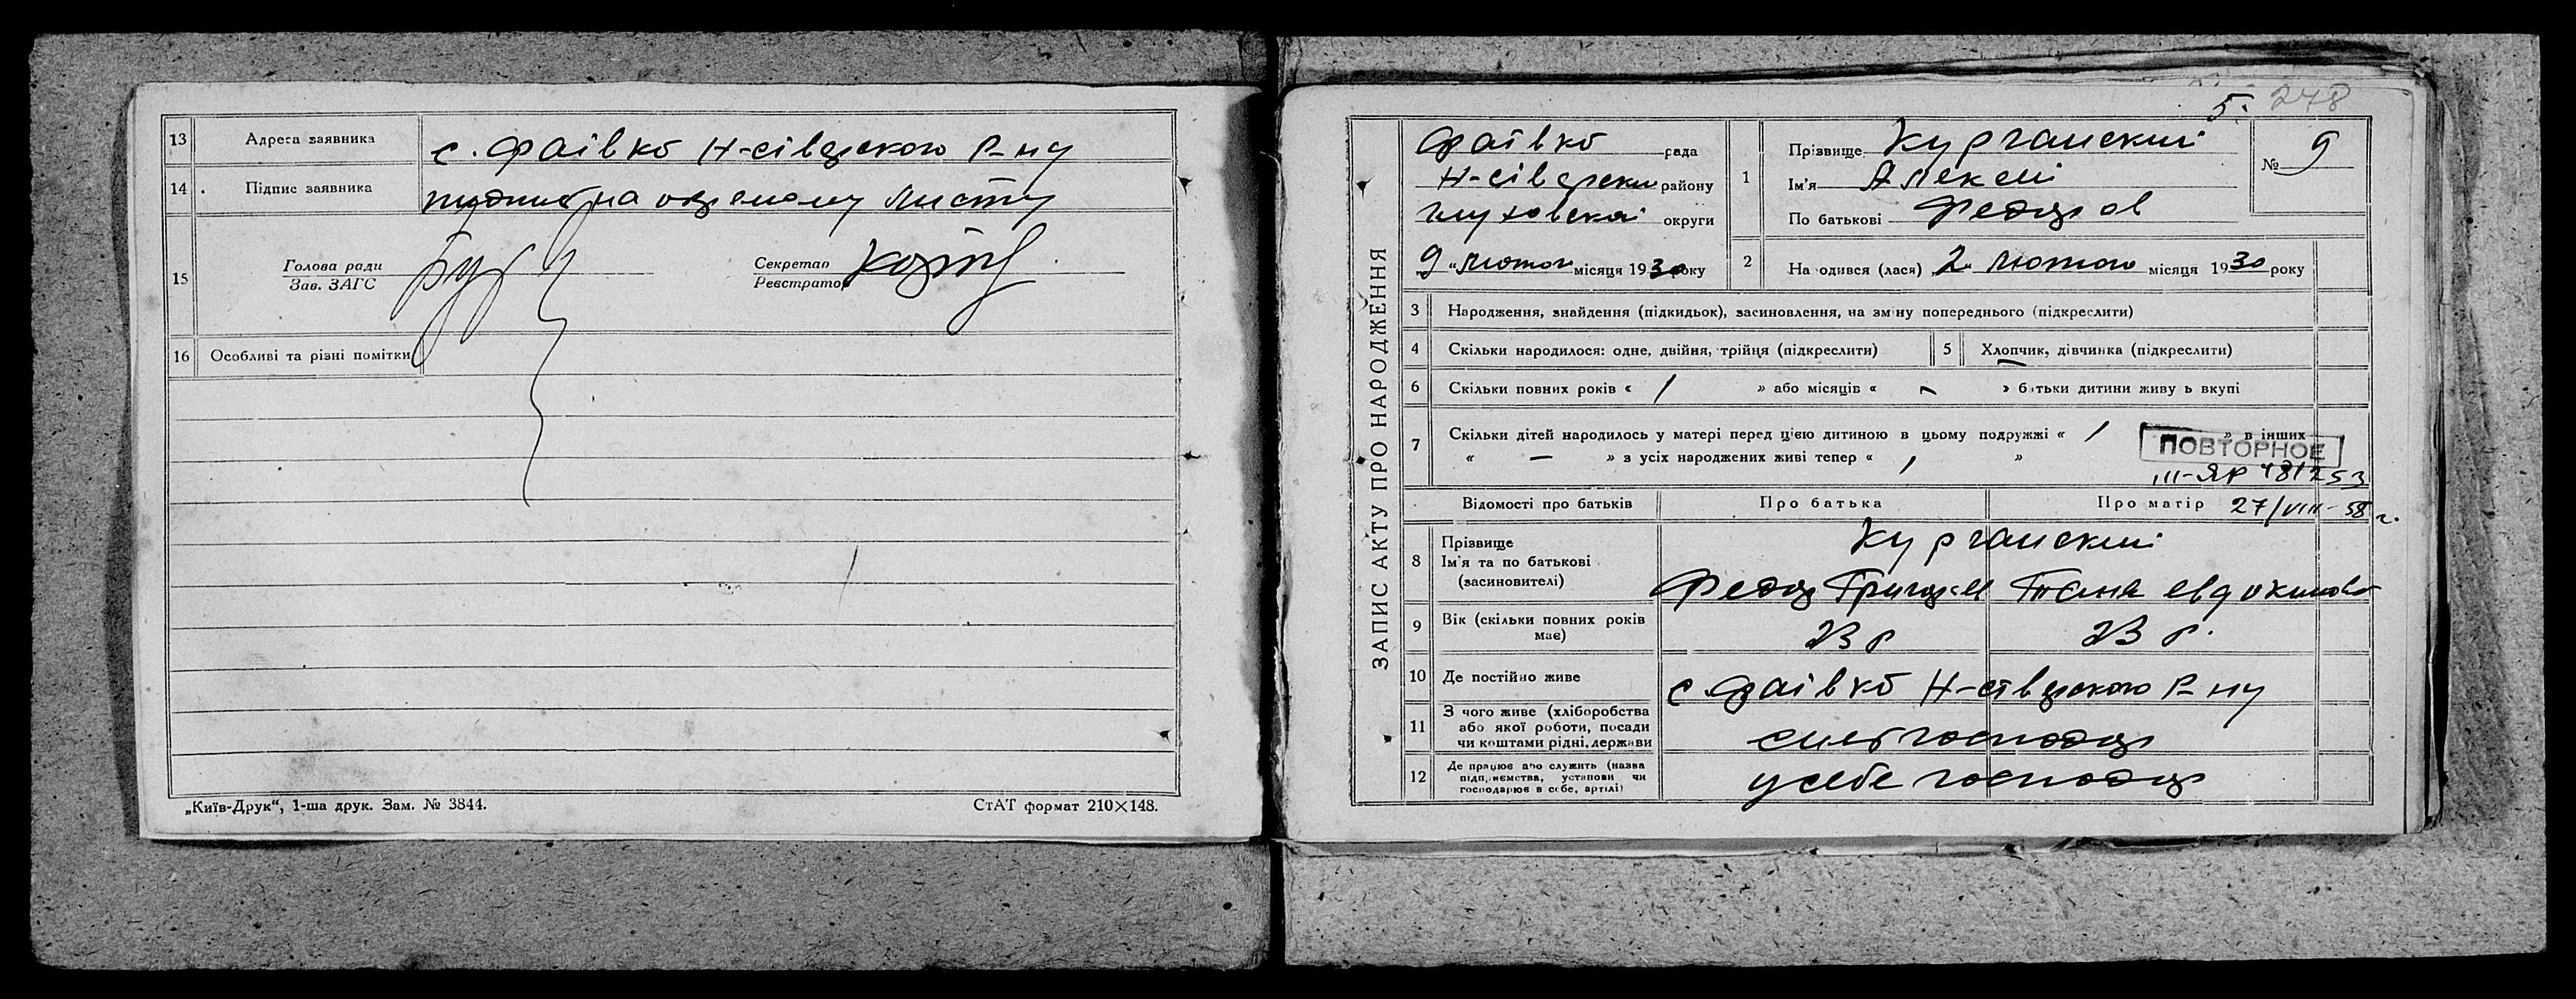 13 Адреса заявника с. Фаівка Н-сіверського р-ну
14 Підпис заявника на окремому листу
15 Голова ради
Зав. ЗАГС
Секретар
Реєстратор
16 Особливі та різні помітки
„Київ-Друк“, 1-ша друк. Зам. № 3844. СтАТ формат 210×148.
5. 278
ЗАПИС АКТУ ПРО НАРОДЖЕННЯ
Фаівка рада
Н-сіверски району
Глуховскоі округи
9 „лютого місяця 1930 року
1 Прізвище Курганский
Ім'я Алексей
По батькові Федоров
№ 9
2 На одився (лася) 2 „ лютого місяця 1930 року
3 Народження, знайдення (підкидьок), засиновлення, на зміну попереднього (підкреслити)
4 Скільки народилося: одне, двійня, трійця (підкреслити) 5 Хлопчик, дівчинка (підкреслити)
6 Скільки повних років « 1 » або місяців « – » батьки дитини живуть вкупі
7 Скільки дітей народилось у матері перед цією дитиною в цьому подружжі « 1 » в інших
« — » з усіх народжених живі тепер « 1 »
ПОВТОРНОЕ
III-ЯР 481253
27/VIII-58 г.
Відомості про батьків Про батька Про матір
8 Прізвище
Ім'я та по батькові
(засиновителі)
Курганский
Федор Тана Евдокимовна
9 Вік (скільки повних років
має)
23 р 23 р.
10 Де постійно живе с Фаівка Н-сіверського р-ну
11 З чого живе (хліборобства
або якої роботи, посади
чи коштами рідні, держави
12 Де працює або служить (назва
підприємства, установи чи
господарює в себе, артілі)
у себе